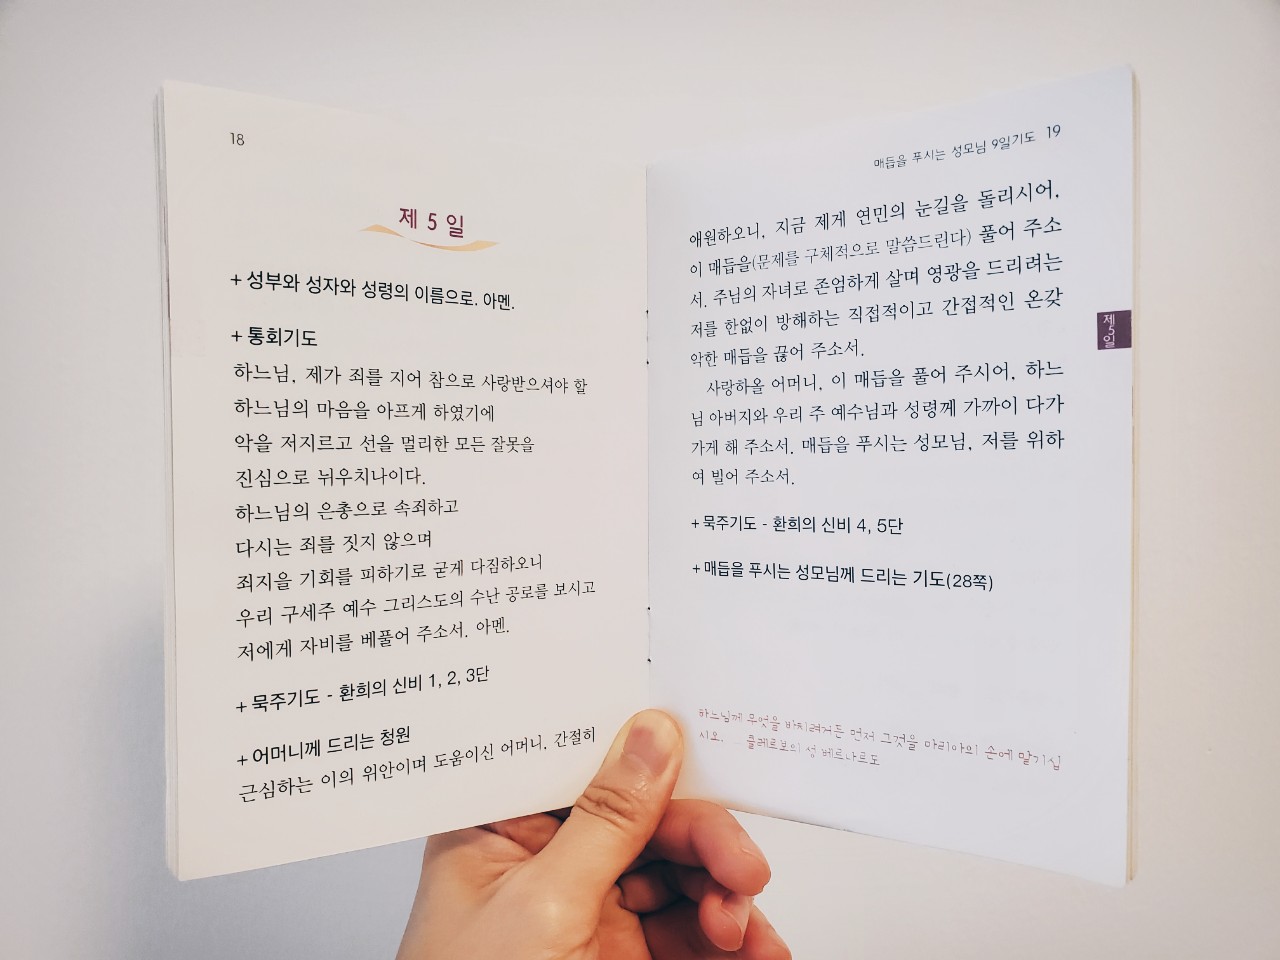 18
제 5 일
+ 성부와 성자와 성령의 이름으로. 아멘.
+ 통회기도
하느님, 제가 죄를 지어 참으로 사랑받으셔야 할
하느님의 마음을 아프게 하였기에
악을 저지르고 선을 멀리한 모든 잘못을
진심으로 뉘우치나이다.
하느님의 은총으로 속죄하고
다시는 죄를 짓지 않으며
죄지을 기회를 피하기로 굳게 다짐하오니
우리 구세주 예수 그리스도의 수난 공로를 보시고
저에게 자비를 베풀어 주소서. 아멘.
+ 묵주기도 - 환희의 신비 1, 2, 3단
+ 어머니께 드리는 청원
근심하는 이의 위안이며 도움이신 어머니, 간절히
매듭을 푸시는 성모님 9일기도 19
애원하오니, 지금 제게 연민의 눈길을 돌리시어,
이 매듭을(문제를 구체적으로 말씀드린다) 풀어 주소
서. 주님의 자녀로 존엄하게 살며 영광을 드리려는
저를 한없이 방해하는 직접적이고 간접적인 온갖
악한 매듭을 끊어 주소서.
사랑하올 어머니, 이 매듭을 풀어 주시어, 하느
님 아버지와 우리 주 예수님과 성령께 가까이 다가
가게 해 주소서. 매듭을 푸시는 성모님, 저를 위하
여 빌어 주소서.
+ 묵주기도 - 환희의 신비 4, 5단
+ 매듭을 푸시는 성모님께 드리는 기도(28쪽)
하느님께 무엇을 바치려거든 먼저 그것을 마리아의 손에 맡기십
시오. … 클레르보의 성 베르나르도
제
5
일